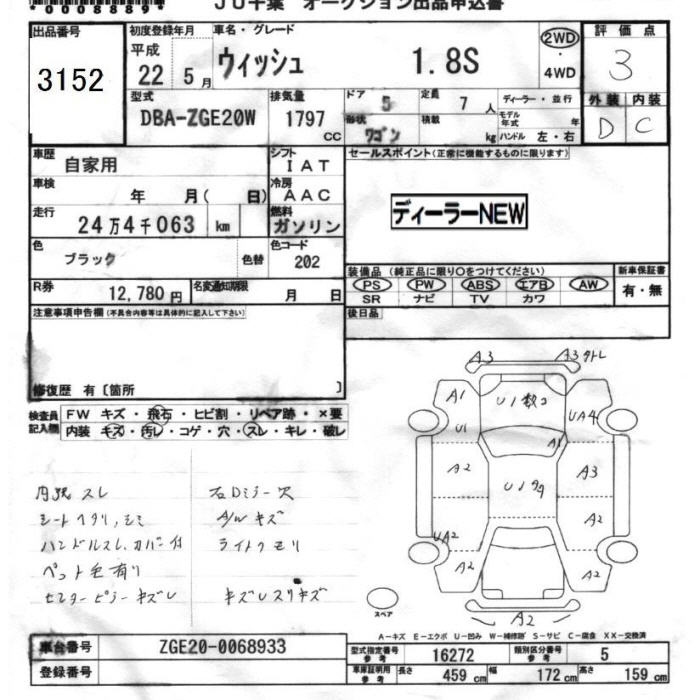 00088894
JU千葉 オークション出品申込書
出品番号 初度登録年月 車名・グレード 2WD 評価点
3152 平成 22 5月 ウィッシュ 1.8S ・ 4WD 3
型式 排気量 ドア 5 定員 7人 ディーラー・並行 外装 内装
DBA-ZGE20W 1797 CC 形状 ワゴン 積載 kg モデル年式 年 ハンドル 左・右 D C
車歴 自家用 シフト IAT セールスポイント(正常に機能するものに限ります)
車検 年 月( 日) 冷房 AAC
走行 24万4千063 km 燃料 ガソリン ディーラーNEW
色 ブラック 色替 色コード 202
装備品(純正品に限り○をつけてください) 新車保証書
R券 12,780円 名変通知期限 月 日 PS PW ABS エアB AW 有・無
SR ナビ TV カワ
注意事項申告欄(不具合内容等は具体的に記入して下さい) 後日品
修復歴 有〔箇所 〕
検査員記入欄 FW キズ・飛石・ヒビ割・リペア跡・×要
内装 キズ・汚レ・コゲ・穴・スレ・キレ・破レ
A3 A3
A1 U1 UA4
U1 A1
A2 U1 A3
A2
UA2
A2 A2
A2
内張 スレ 右Dミラー 穴
シートヘタリ,シミ A/W キズ
ハンドルスレ,カバー付 ライトクモリ
ペット毛有り
センターピラーキズレ キズレスリキズ
スペア
A-キズ E-エクボ U-凹み W-補修跡 S-サビ C-腐食 XX-交換済
車台番号 ZGE20-0068933 型式指定番号 参考 16272 類別区分番号 参考 5
登録番号 車庫証明用 参考 長さ 459 cm 幅 172 cm 高さ 159 cm